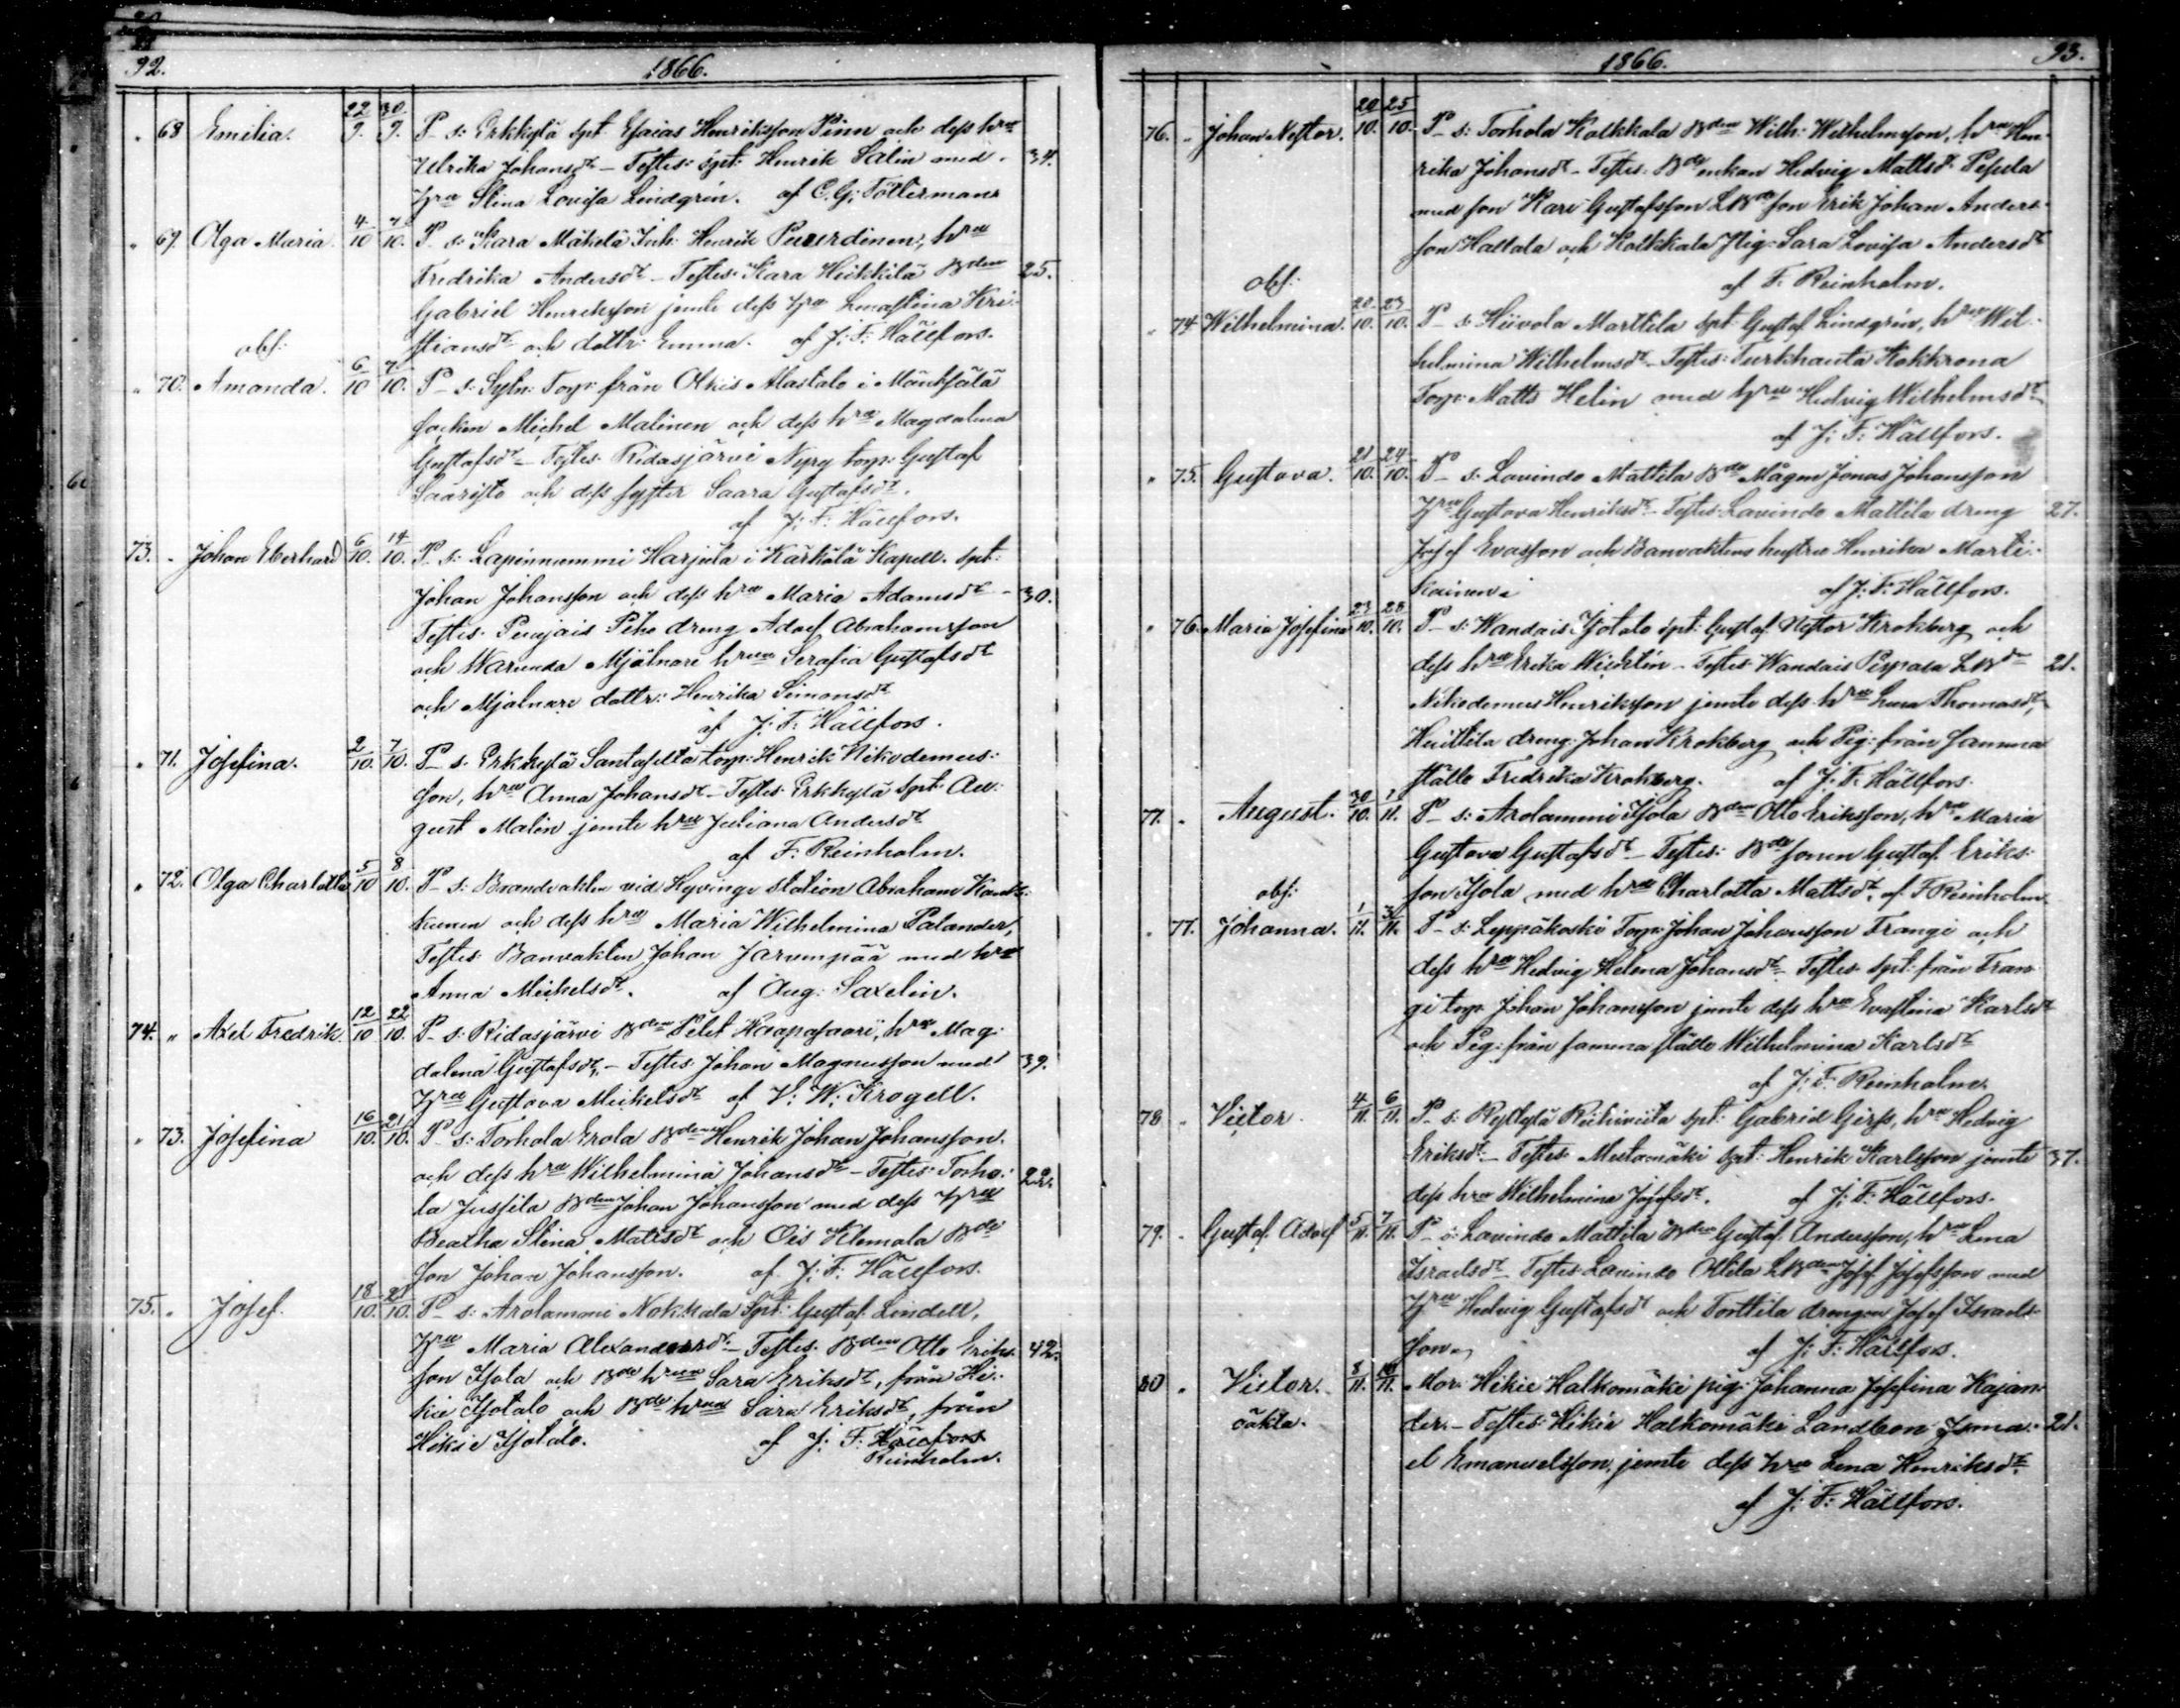 92. 1866.
" 68 Emilia. 22/9. 30/9. P. s: Erkkylä Spt Esaias Henriksson Pinn och dess hru
Ulrika Johansdr – Testes: Spt: Henrik Salin med 34.
hru Stina Lovisa Lindgrén. af C. G. Tötterman
" 69. Olga Maria. 4/10 7/10. P. s: Kara Mäkelä Inh: Henrik , hru
Fredrika Andersdr – Testes: Kara Heikkilä Bden 25.
Gabriel Henriksson jemte dess hru Lenastina Kri-
obs: stiansdr och dottr: Emma. af J: F: Hällfors.
" 70. Amanda. 6/10 7/10. P. s: Sytn: Torp: från Olkis Alastalo i Mäntsälä
socken Michel Malinen och dess hru Magdalena
Gustafsdr – Testes: Ridasjärvi Nyry torp: Gustaf
Saaristo och dess syster Saara Gustafsdr.
af J: F: Hällfors.
73. " Johan Eberhard 6/10. 14/10. P. s: Lapinnummi Harjula i Kärkölä Kapell. Spt:
Johan Johansson och dess hru Maria Adamsdr – 30.
Testes: Puujais Peho dreng Adolf Abrahamsson
och Warunda Mjölnare hrun Serafia Gustafsdr
och Mjölnare dottr: Henrika Simonsdr
af J: F: Hällfors.
" 71. Josefina. 2/10. 7/10. P. s: Erkkylä torp: Henrik Nikodemus-
son, hru Anna Johansdr – Testes: Erkkylä Spt: Au-
gust Malin jemte hru Juliana Andersdr
af F: Reinholm.
" 72. Olga Charlotta 5/10 8/10. P. s: Banvakten vid Hyvinge station Abraham
och dess hru Maria Wilhelmina Palander,
Testes: Banvakten Johan Järvenpää med hru
Anna Mickelsdr. af Aug: Saxelin.
74. " Axel Fredrik. 12/10 22/10. P. s: Ridasjärvi Bden Petet Haapasaari, hru Mag-
dalena Gustafsdr, – Testes: Johan Magnusson med 39.
hru Gustava Mickelsdr af V: W: Krogell.
" 73. Josefina 16/10. 21/10. P. s: Torhola Erola Bden Henrik Johan Johansson.
och dess hru Wilhelmina Johansdr – Testes: Torho- 22.
la Jussila Bden Johan Johansson med dess hru
Beatha Stina Mattsdr och Ois Klemola Bde
son Johan Johansson. af J: F: Hällfors.
75. " Josef. 18/10. 21/10. P. s: Arolammi Nokkala Spt: Gustaf Lindell,
hru Maria Alexandersdr – Testes: Bden Otto Eriks- 42.
son Isola och Bde hrun Sara Eriksdr, från Hi-
kie Isotalo och Bde hrun Sara Eriksdr, från
Hikie Isotalo. af J: F: Hällfors
Reinholm.
1866. 93.
76. " Johan Nestor. 20/10. 25/10. P. s: Torhola Kolkkala Bden Wilh: Wilhelmsson, hru Hen-
rika Johansdr – Testes: Bde enkan Hedvig Mattsdr
med son Karl Gustafsson LBde son Erik Johan Anders-
son Hattala och Kolkkala Pig: Sara Lovisa Andersdr
obs: af F. Reinholm.
" 74 Wilhelmina. 20/10. 23/10. P. s: Hiivola Marttila Spt: Gustaf Lindgrén, hru Wil-
helmina Wilhelmsdr – Testes: Turkhauta Kokkrona
Torp: Matts Helin med hru Hedvig Wilhelmsdr
af J: F: Hällfors.
" 75. Gustava. 21/10. 24/10. P. s: Lavindo Mattila Bde Mågen Jonas Johansson
hru Gustava Henriksdr – Testes: Lavindo Mattila dreng 27.
Josef Evasson och Banvaktens hustru Henrika Marti-
kainen. af J: F: Hällfors.
" 76. Maria Josefina 23/10. 28/10. P. s: Wandais Isotalo Spt: Gustaf Nestor Krokberg och
dess hru Erika Wichtlin – Testes: Wandais LBde 21.
Nikodemus Henriksson jemte dess hru Lena Thomasdr,
Huittila dreng: Johan Krokberg och Pig: från samma
ställe Fredrika Krokberg. af J: F: Hällfors.
77. " August. 30/10. /11. P. s: Arolammi Isola Bden Otto Eriksson, hru Maria
Gustava Gustafsdr – Testes: Bde sonen Gustaf Eriks-
obs: son Isola med hru Charlotta Mattsdr. af F Reinholm.
" 77. Johanna. 1/11. 3/11. P. s: Leppäkoski Torp: Johan Johansson Frangi och
dess hru Hedvig Helena Johansdr – Testes: Spt: från Fran-
gi torp Johan Johansson jemte dess hru Evastina Karlsdr
och Pig: från samma ställe Wilhelmina Karlsdr
af J: F: Reinholm.
78 " Victor 4/11. 6/11. P. s: Ryttylä Riihiviita Spt: Gabriel Girss, hru Hedvig
Eriksdr – Testes: Mustamäki Spt: Henrik Karlsson jemte 37.
dess hru Wilhelmina Josefsdr. af J: F: Hällfors.
79. " Gustaf Adolf 5/11. 7/11. P. s: Lavindo Mattila Bden Gustaf Andersson, hru Lena
Israelsdr – Testes: Lavindo Ollila LBden Josef Josefsson med
hru Hedvig Gustafsdr och Torttila drengen Josef Israels-
son. af J: F: Hällfors.
80 " Victor. 8/11. 10/11. Mor: Hikie Halkomäki pig: Johanna Josefina Kajan-
oäkta. der. – Testes: Hikie Halkomäki Landbon Isma- 21.
el Emanuelsson, jemte dess hru Lena Henriksdr.
af J: F: Hällfors.